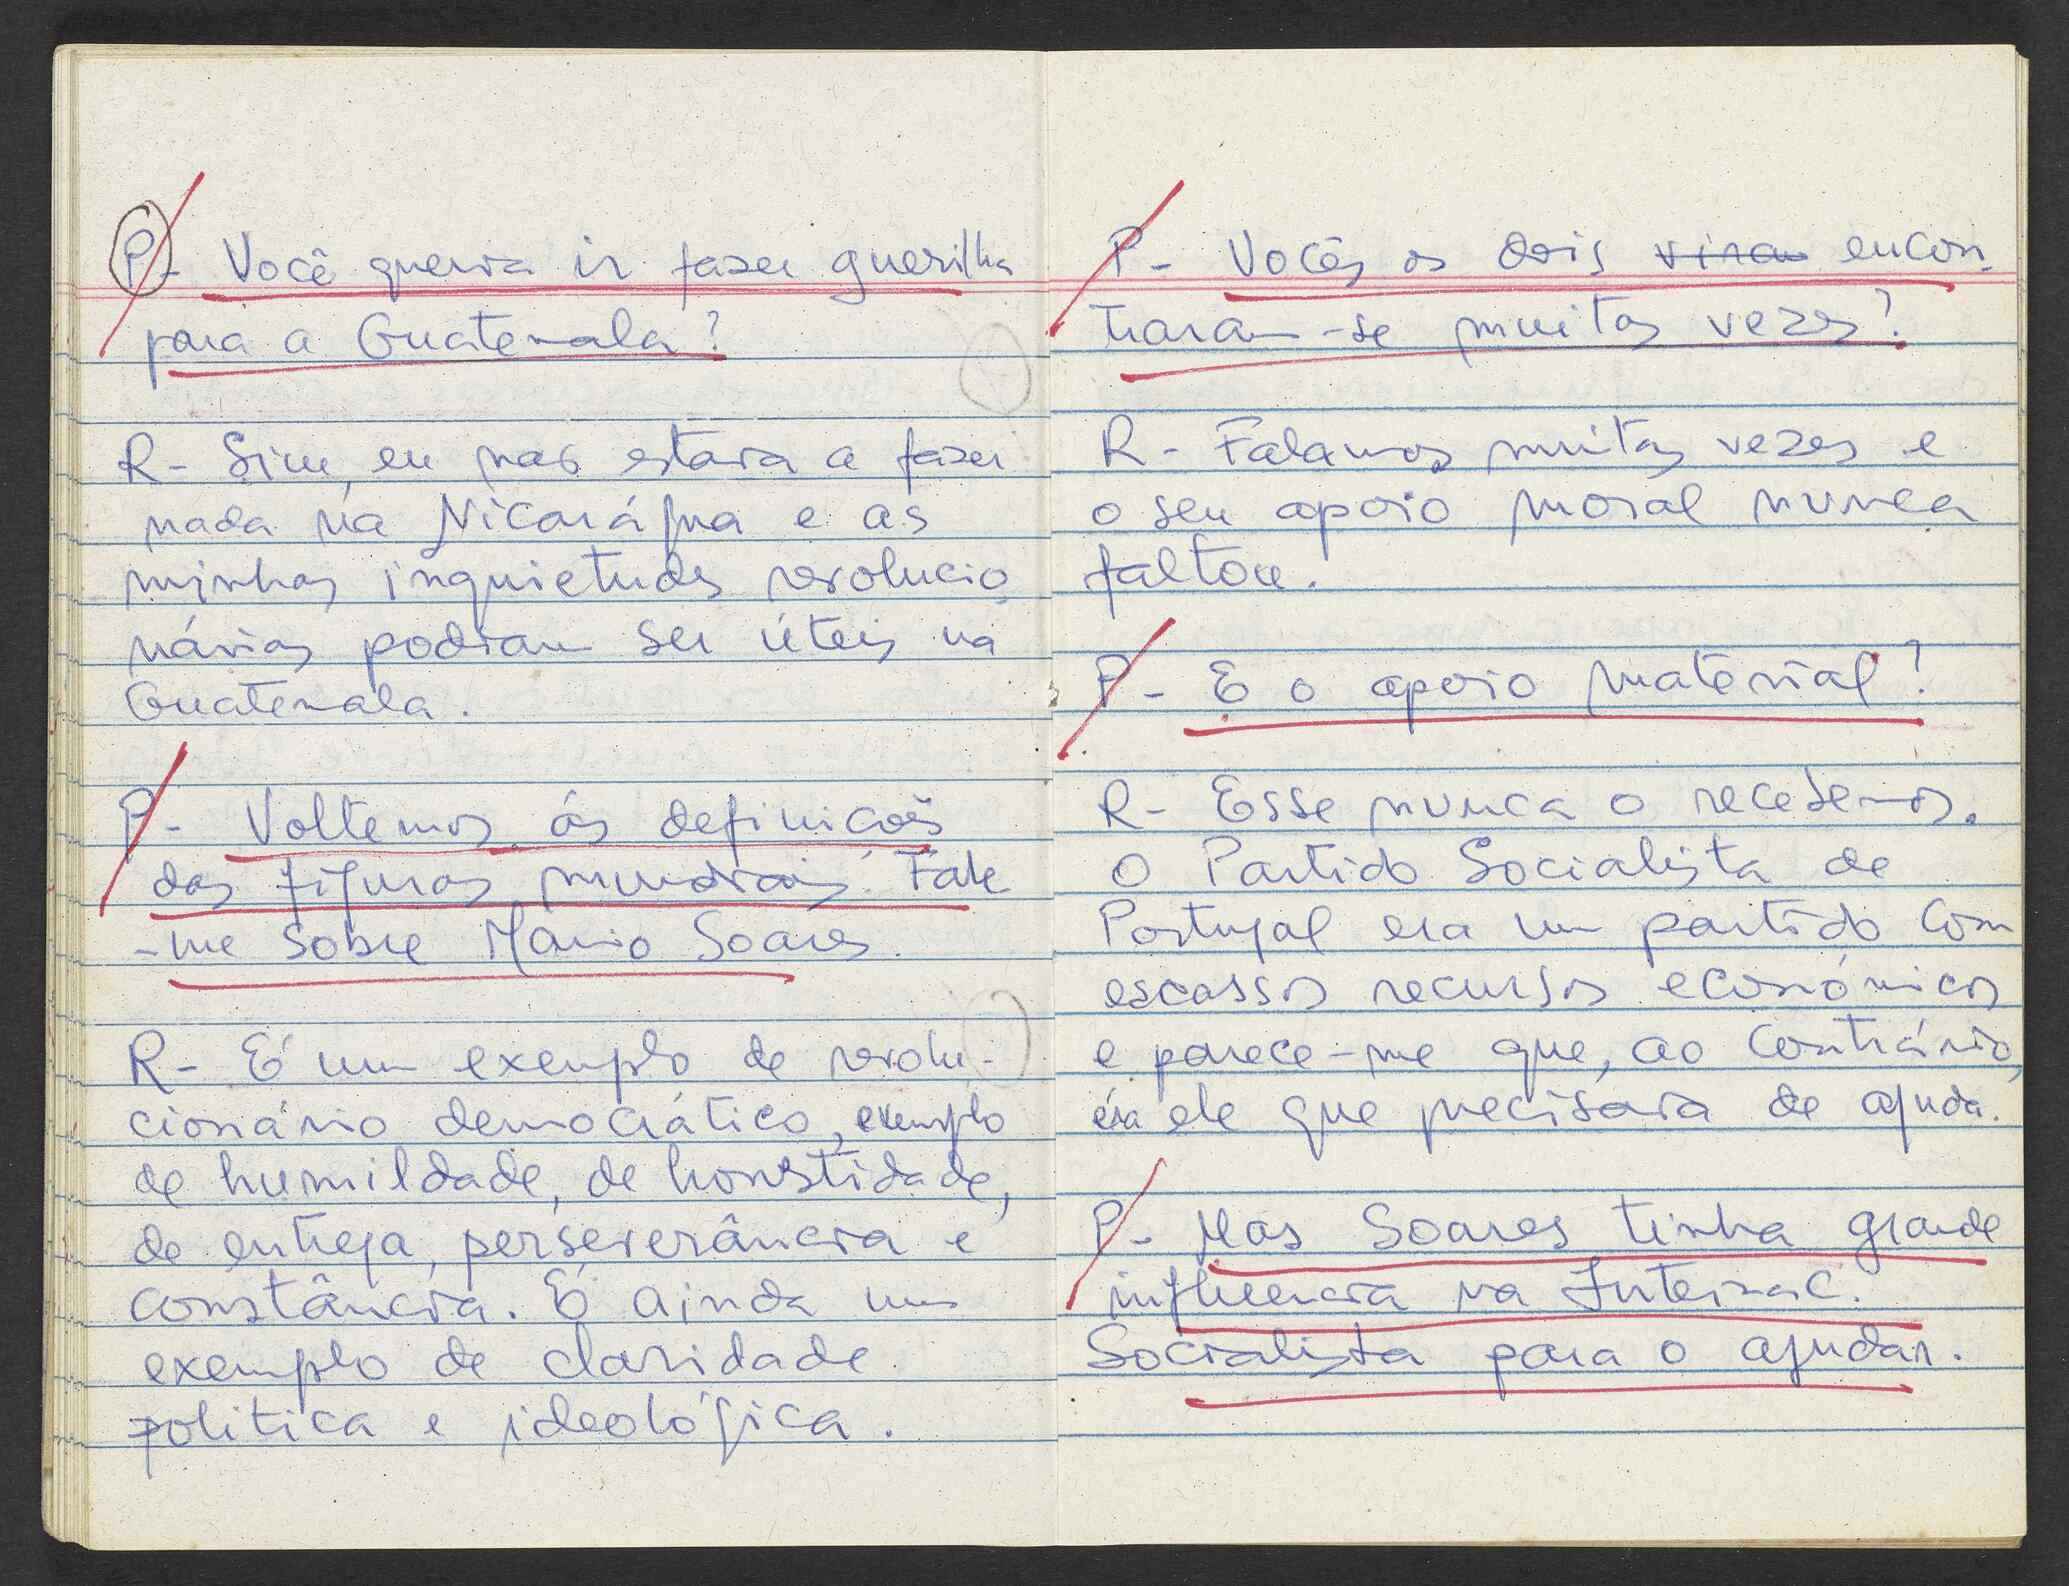 P- Você queria ir fazer guerilha
para a Guatemala?
R- Sim, eu não estava a fazer
nada na Nicarágua e as
minhas inquietudes revolucio
nárias podiam ser úteis na
Guatemala.
P- Voltemos ás definições
das figuras mundiais. Fale
-me sobre Mário Soares.
R- É um exemplo de revolu-
cionário democrático, exemplo
de humildade, de honestidade,
de entrega, perseverância e
constância. É ainda um
exemplo de claridade
politica e ideológica.
P- Vocês os dois viram encon-
traram-se muitas vezes?
R- Falamos muitas vezes e
o seu apoio moral nunca
faltou.
P- E o apoio material?
R- Esse nunca o recebemos.
O Partido Socialista de
Portugal era um partido com
escassos recursos económicos
e parece-me que, ao contrário,
era ele que precisava de ajuda.
P- Mas Soares tinha grande
influencia na Internac.
Socialista para o ajudar.